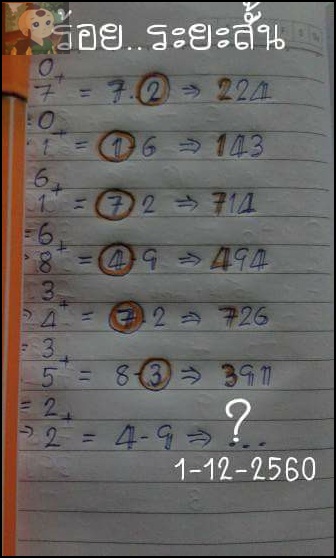 ร้อย..ระยะสั้น
0 +
7 = 7-2 ⇒ 224
0 +
1 = 1-6 ⇒ 143
6 +
1 = 7-2 ⇒ 714
6 +
8 = 4-9 ⇒ 494
3 +
4 = 7-2 ⇒ 726
3 +
5 = 8-3 ⇒
2 +
2 = 4-9 ⇒ ?...
1-12-2560